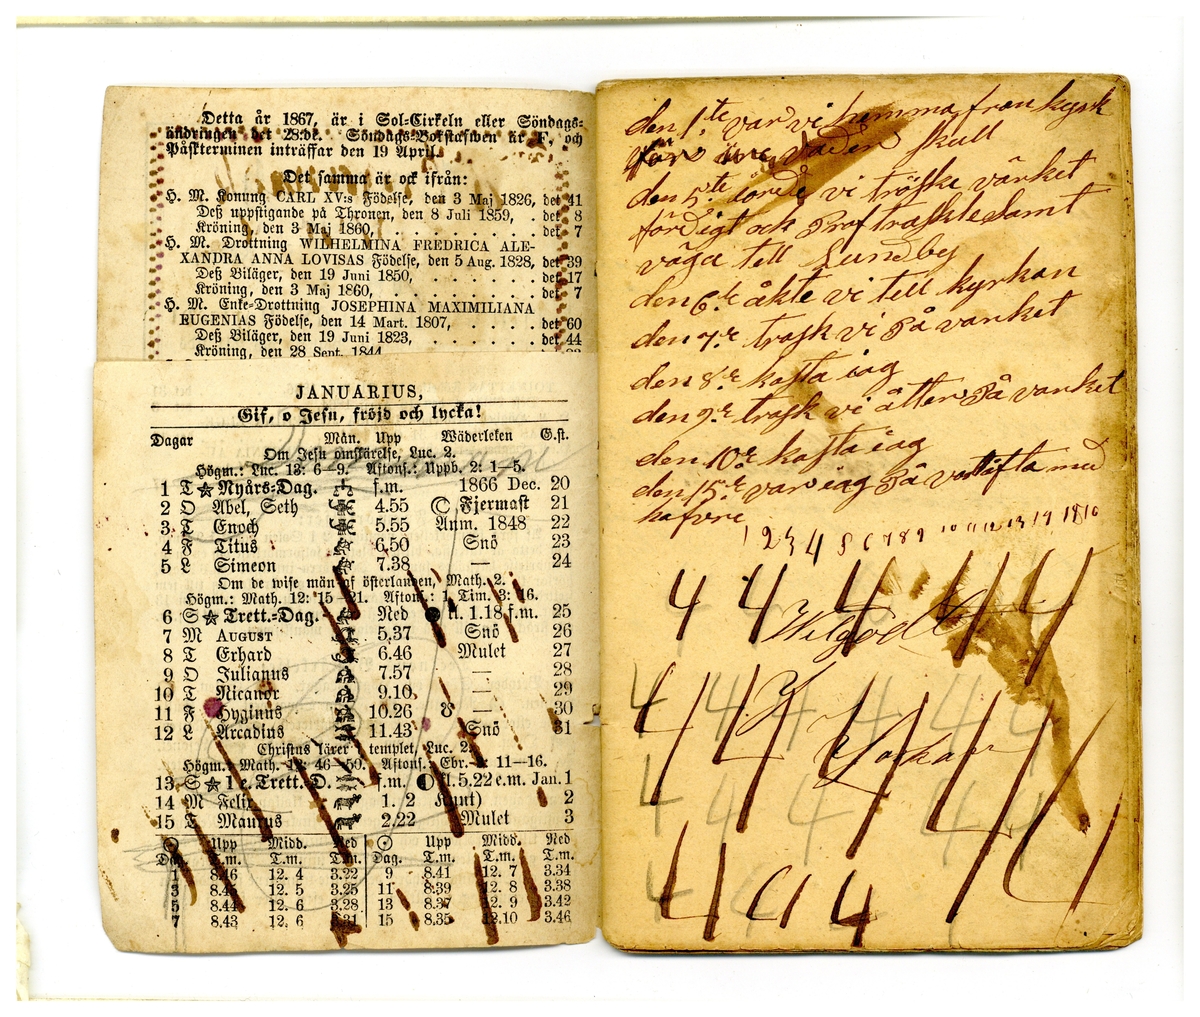 Detta år 1867, är i Sol-Cirkeln eller Söndags-
ändringen det 28:de. Söndags-Bokstafwen är F, och
Påskterminen inträffar den 19 April.
Det samma är ock ifrån:
H. M. Konung CARL XV:s Födelse, den 3 Maj 1826, det 41
Deß uppstigande på Thronen, den 8 Juli 1859, . det 8
Kröning, den 3 Maj 1860, . . . . . . . . . det 7
H. M. Drottning WILHELMINA FREDRICA ALE-
XANDRA ANNA LOVISAS Födelse, den 5 Aug. 1828, det 39
Deß Biläger, den 19 Juni 1850, . . . . . . det 17
Kröning, den 3 Maj 1860, . . . . . . . . . det 7
H. M. Enke-Drottning JOSEPHINA MAXIMILIANA
EUGENIAS Födelse, den 14 Mart. 1807, . . . . det 60
Deß Biläger, den 19 Juni 1823, . . . . . . det 44
Kröning, den 28 Sept. 1844
JANUARIUS,
Gif, o Jesu, fröjd och lycka!
Dagar Mån. Upp Wäderleken G.st.
Om Jesu omskärelse, Luc. 2.
Högm.: Luc. 13: 6-9. Aftons.: Uppb. 2: 1-5.
1 T Nyårs-Dag. f.m. 1866 Dec. 20
2 O Abel, Seth 4.55 Fjermast 21
3 T Enoch 5.55 Anm. 1848 22
4 F Titus 6.50 Snö 23
5 L Simeon 7.38 — 24
Om de wise män af österlanden, Math. 2.
Högm.: Math. 12: 15-21. Aftons.: 1 Tim. 3: 16.
6 S Trett.=Dag. Ned kl. 1.18 f.m. 25
7 M AUGUST 5.37 Snö 26
8 T Erhard 6.46 Mulet 27
9 O Julianus 7.57 — 28
10 T Nicanor 9.10 — 29
11 F Hyginus 10.26 — 30
12 L Arcadius 11.43 Snö 31
Christus lärer i templet, Luc. 2.
Högm.: Math. 12: 46-50. Aftons.: Ebr. : 11-16.
13 S 1 e. Trett. D. f.m. kl. 5.22 e.m. Jan. 1
14 M Felix 1. 2 Knut) 2
15 T Maurus 2.22 Mulet 3
Upp Midd. Ned Upp Midd. Ned
Dag. T.m. T.m. T.m. Dag. T.m. T.m. T.m.
1 8.46 12. 4 3.22 9 8.41 12. 7 3.34
3 8.45 12. 5 3.25 11 8.39 12. 8 3.38
5 8.44 12. 6 3.28 13 8.37 12. 9 3.42
7 8.43 12. 6 3.31 15 8.35 12.10 3.46
den 1.te var vi hemma från kyrk
för vadin skull
den 5.te jorde vi tröske värket
färdigt och Prof traskte samt
väga tell Lundby
den 6.te åkte vi tell kyrkan
den 7.e trask vi På vanket
den 8.e kasta iag
den 9.e trask vi åtter På vanket
den 10.e kasta iag
den 15.e var iag På vatöfta med
hafvre
1 2 3 4 5 6 7 8 9 10 11 12 13 14 18 10
4 4 4 4 4
Wilgodt
4 4 4 4 4 4 4
Y
Johan
4 4 4